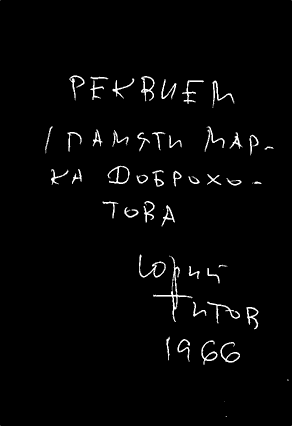 РЕКВИЕМ
/ ПАМЯТИ МАР-
КА ДОБРОХО-
ТОВА
Юрий
Титов
1966